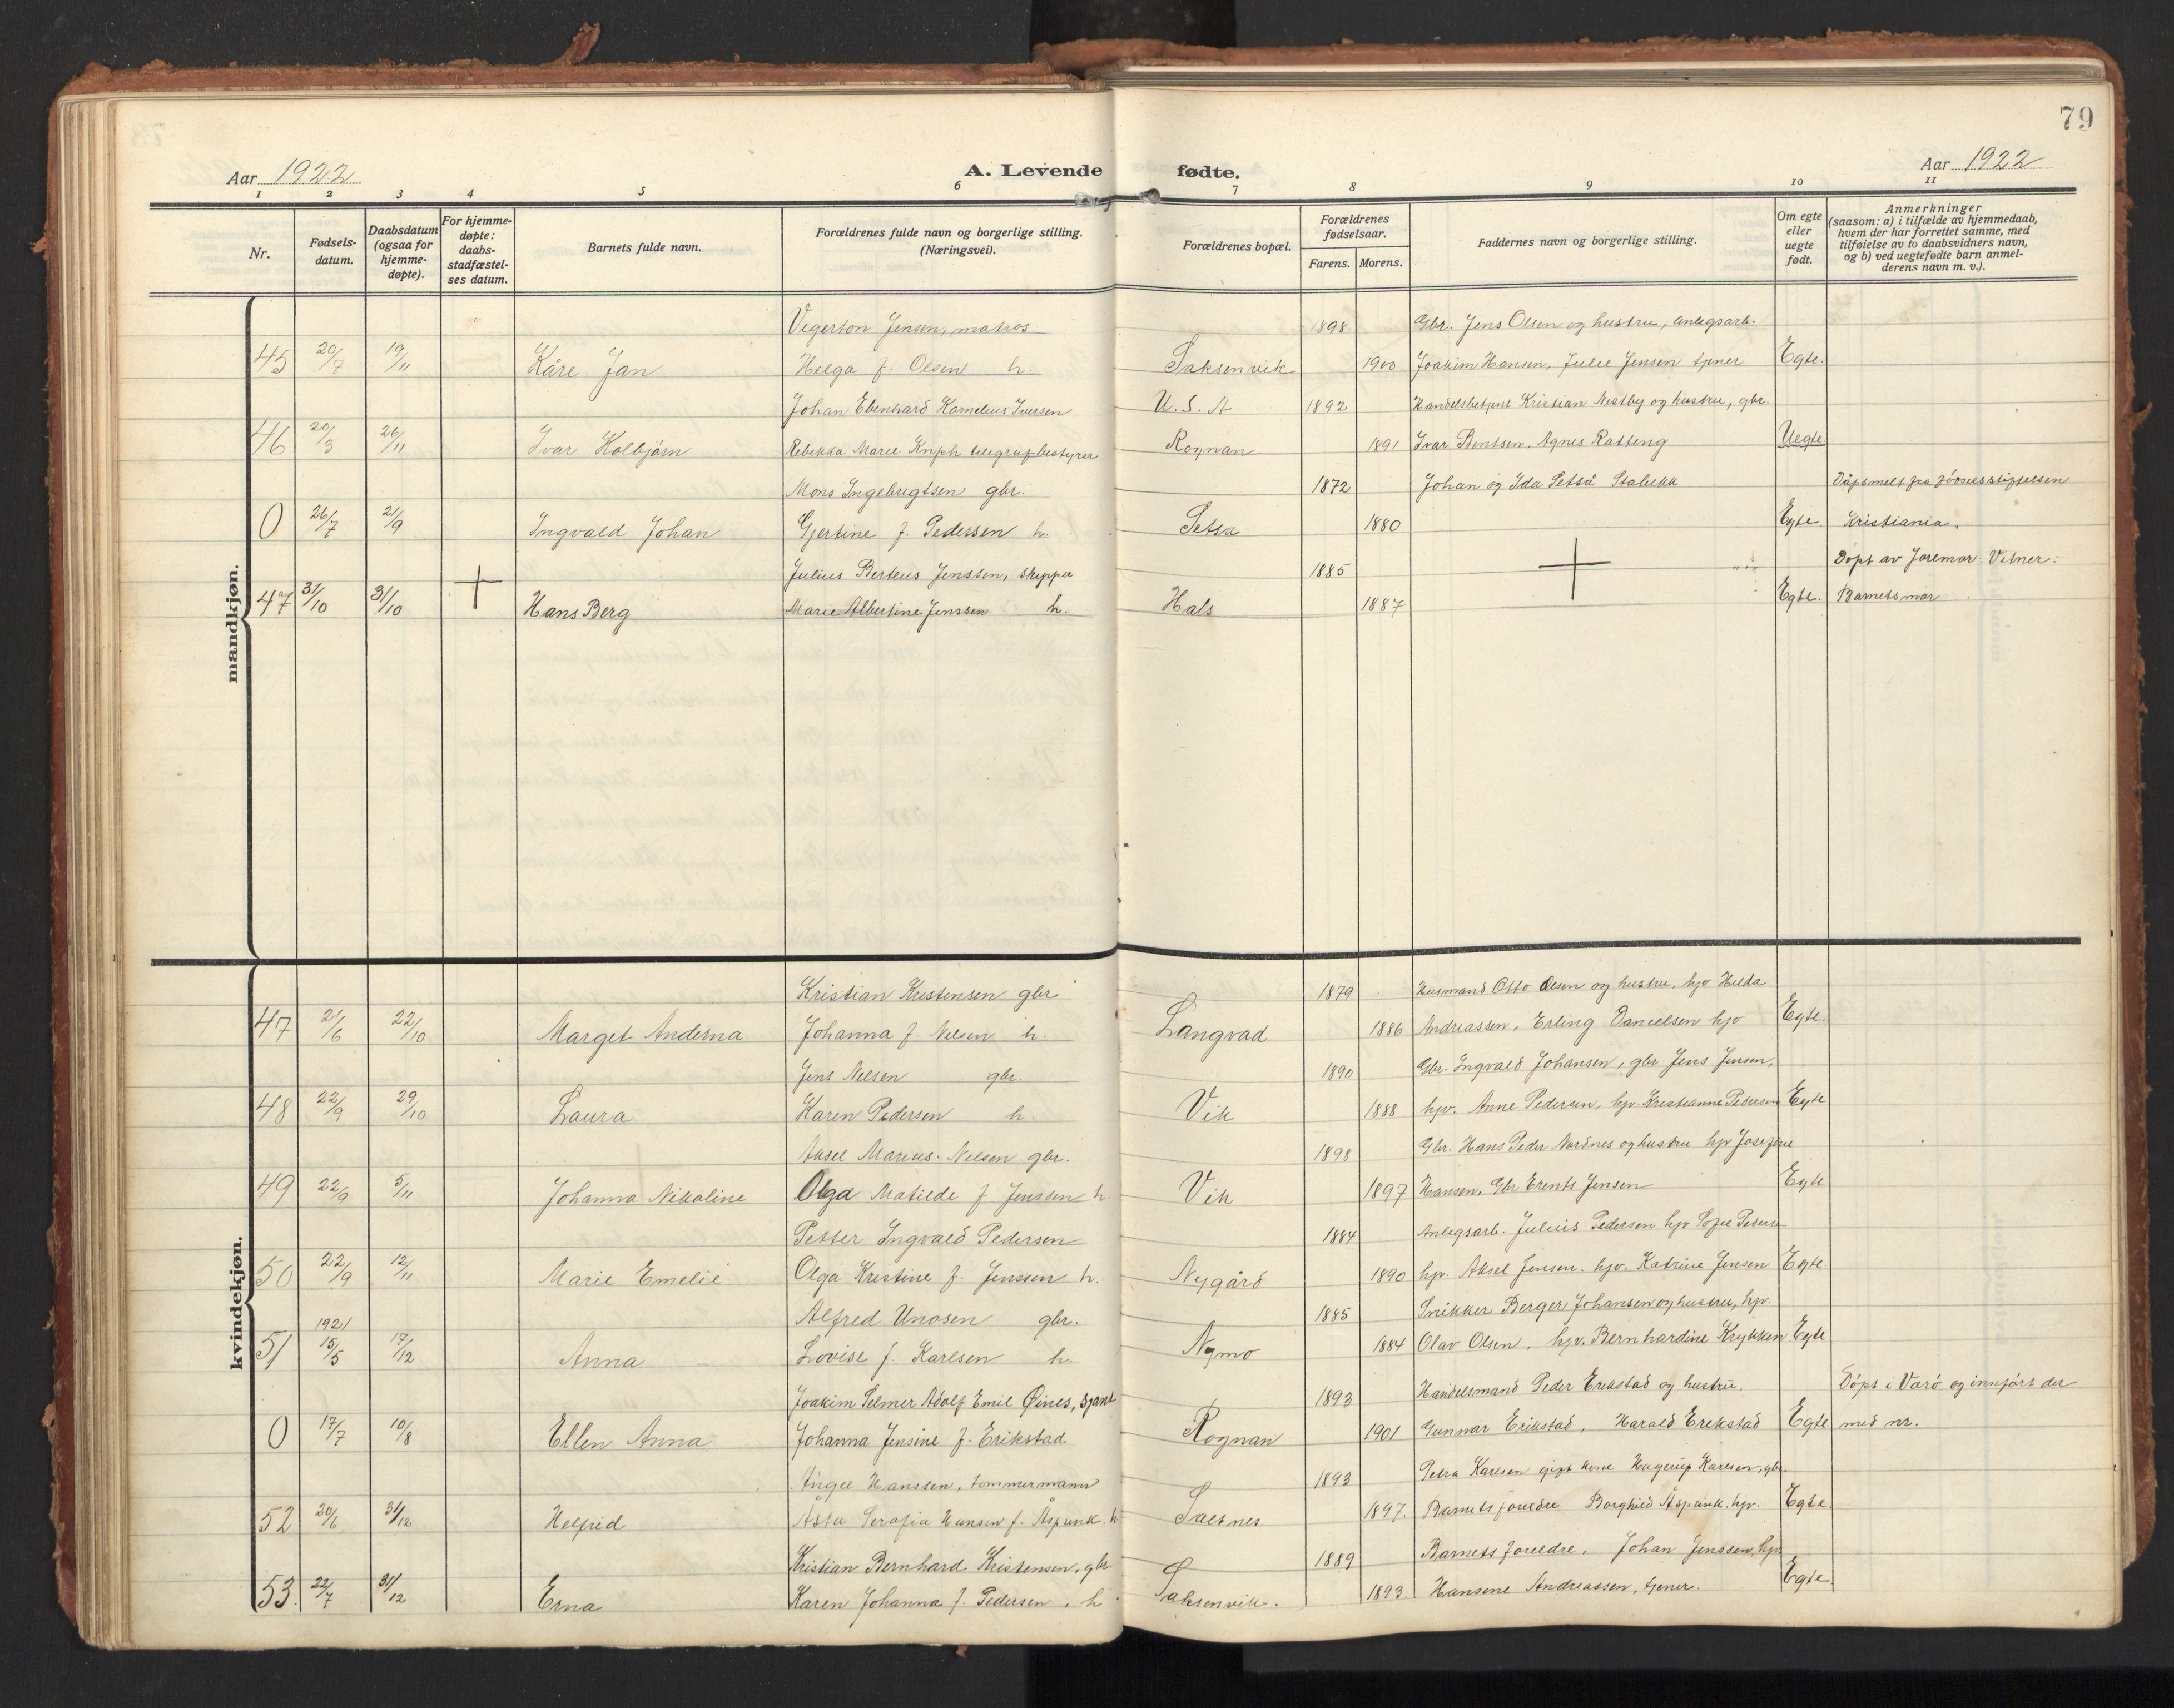 79
Aar 1922 A. Levende fødte. Aar 1922
1 2 3 4 5 6 7 8 9 10 11
Nr.
Fødsels-
datum.
Daabsdatum
(ogsaa for
hjemme-
døpte).
For hjemme-
døpte:
daabs-
stadfæstel-
ses datum.
Barnets fulde navn.
Forældrenes fulde navn og borgerlige stilling.
(Næringsvei).
Forældrenes bopæl.
Forældrenes
fødselsaar.
Farens. Morens.
Faddernes navn og borgerlige stilling.
Om egte
eller
uegte
født.
Anmerkninger
(saasom: a) i tilfælde av hjemmedaab,
hvem der har forrettet samme, med
tilføielse av to daabsvidners navn,
og b) ved uegtefødte barn anmel-
derens navn m. v.).
mandkjøn.
Vegerton Jensen, matros 1898 Gbr. Jens Olsen og hustru, anlegsarb.
45 20/7 19/11 Kåre Jan Helga f. Olsen h. Saksenvik 1900 Joakim Hansen, Julie Jensen tjener Egte.
Johan Ebenhard Kornelius Iversen U. S. A 1892 Handelsbetjent Kristian Nestby og hustru, gbr.
46 20/3 26/11 Ivar Kolbjørn Rebekka Marie Knph telegrafbestyrer Rognan 1891 Ivar Bentsen, Agnes Ratteng Uegte
Mons Ingebrigtsen gbr. 1872 Johan og Ida Setså Stabekk Dåpsmelt fra
0 26/7 2/9 Ingvald Johan Gjertine f. Pedersen h. Setså 1880 Egte Kristiania.
Julius Berteus Jenssen, skipper 1885 Døpt av Joremor. Vitner:
47 31/10 31/10 Hans Berg Marie Albertine Jenssen h. Hals 1887 Egte. Barnets mor
kvindekjøn.
Kristian Kristensen gbr 1879 Husmand Otto Olsen og hustru, hjv Hilda
47 2/6 22/10 Marget Anderna Johanna f. Nilsen h. Langvad 1886 Andreassen, Erling Danielsen hjv Egte.
Jens Nilsen gbr. 1890 Gbr. Ingvald Johansen, gbr Jens Jensen,
48 22/9 29/10 Laura Karen Pedersen h. Vik 1888 hjv. Anne Pedersen, hjv. Kristianne Pedersen Egte
Aksel Marius Nilsen gbr. 1898 Gbr. Hans Peder Nordnes og hustru hjv Josefine
49 22/9 5/11 Johanna Nikoline Olga Matilde f Jenssen h Vik 1897 Hansen, Gbr Erents Jensen Egte
Petter Ingvald Pedersen 1884 Anlegsarb. Julius Pedersen hjv Sofie Peders
50 22/9 12/11 Marie Emelie Olga Kristine f. Jenssen h. Nygård 1890 hjv. Aksel Jensen. hjv. Katrine Jensen Egte.
Alfred Unosen gbr. 1885 Snikker Berger Johansen og hustru, hjv.
51 1921 15/5 17/12 Anna Lovise f. Karlsen h. Nymo 1884 Olav Olsen, hjv. Bernhardine Krykken Egte
Joakim Selmer Adolf Emil Øines, 1893 Handelsmand Peder Erikstad og hustru. Døpt i Varø og innført der
0 17/7 10/8 Ellen Anna Johanna Jensine f. Erikstad Rognan 1901 Gunnar Erikstad, Harald Erikstad Egte med nr.
Hansen, tømmermann 1893 Petra Karlsen gift kone Hagerup Karlsen, gbr.
52 20/6 31/12 Helfrid Åsta Serafia Hansen f. Åspunk. h Saltnes 1897. Barnets foreldre Borghild Åspunk. hjv. Egte
Kristian Bernhard Kristensen, gbr. 1889 Barnets foreldre. Johan Jenssen, hjv
53. 22/7 31/12 Erna Karen Johanna f. Pedersen, h. Saksenvik. 1893. Hansine Andreassen, tjener. Egte.